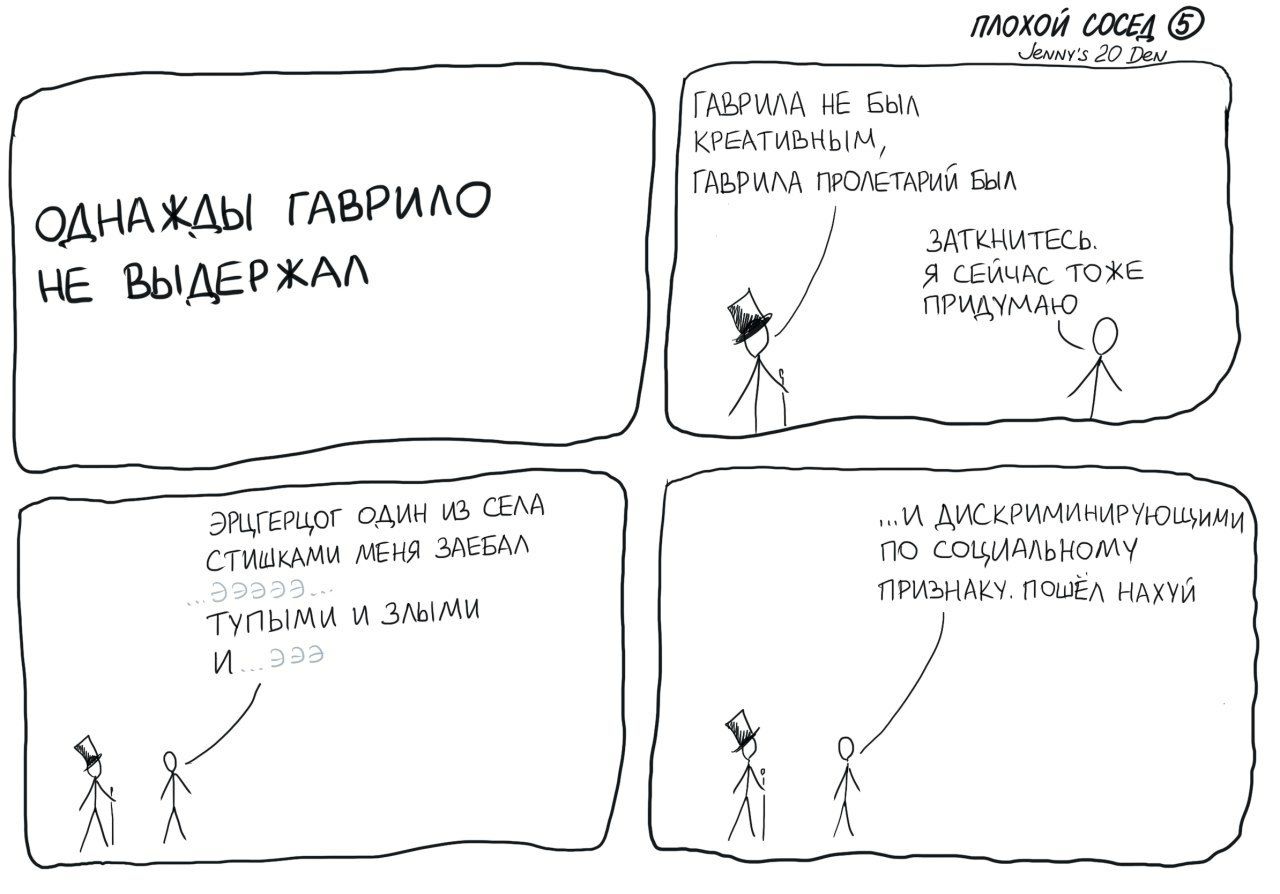 ПЛОХОЙ СОСЕД 5
Jenny's 20 Den
ОДНАЖДЫ ГАВРИЛО
НЕ ВЫДЕРЖАЛ
ГАВРИЛА НЕ БЫЛ
КРЕАТИВНЫМ,
ГАВРИЛА ПРОЛЕТАРИЙ БЫЛ
ЗАТКНИТЕСЬ.
Я СЕЙЧАС ТОЖЕ
ПРИДУМАЮ
ЭРЦГЕРЦОГ ОДИН ИЗ СЕЛА
СТИШКАМИ МЕНЯ ЗАЕБАЛ
...ЭЭЭЭЭ...
ТУПЫМИ И ЗЛЫМИ
И...ЭЭЭ
...И ДИСКРИМИНИРУЮЩИМИ
ПО СОЦИАЛЬНОМУ
ПРИЗНАКУ. ПОШЁЛ НАХУЙ